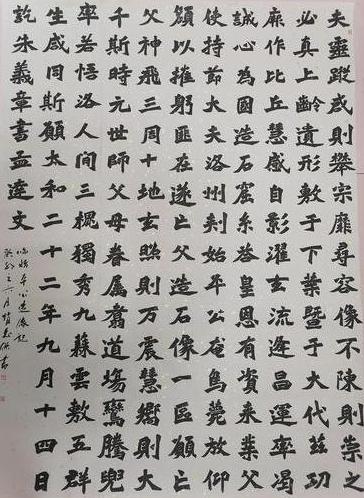 夫靈蹤成則攀宗靡尋容像不陳則崇之
必真上齡遺形敷于下葉暨于大代茲功
厥作比丘慧成自影濯玄流逢昌運率竭
誠心為國造石窟系答皇恩有資来業父
使持節大夫洛州刺始平公奄焉薨放仰
顏以摧躬匪在遂亡父造石像一區願亡
父神飛三周十地玄照則万震慧嚮則大
千斯時元世師父母眷属翥道場鸞騰兜
率若悟洛人間三槐獨秀九蕀雲敷五群
生咸同斯願太和二十二年九月十四日
訖朱義章書孟達文
临始平公造像記
癸卯之六月書